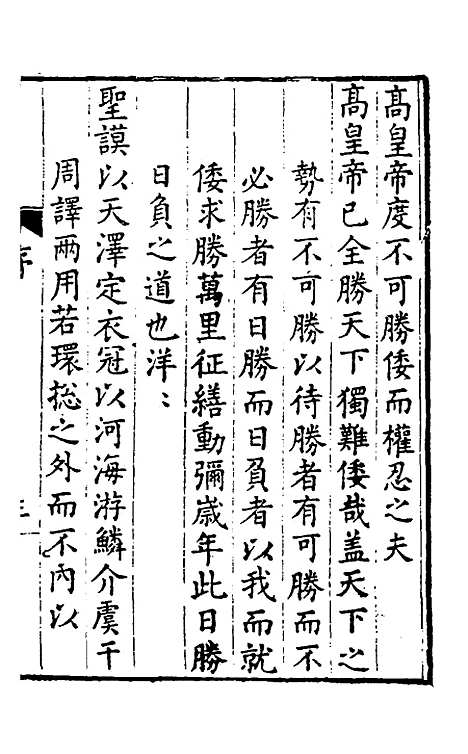 高皇帝度不可勝倭而權忍之夫
高皇帝已全勝天下獨難倭哉盖天下之
勢有不可勝以待勝者有可勝而不
必勝者有日勝而日負者以我而就
倭求勝萬里征繕動彌歲年此日勝
日負之道也洋〻
聖謨以天澤定衣冠以河海游鱗介虞干
周譯兩用若環捴之外而不內以
序
三